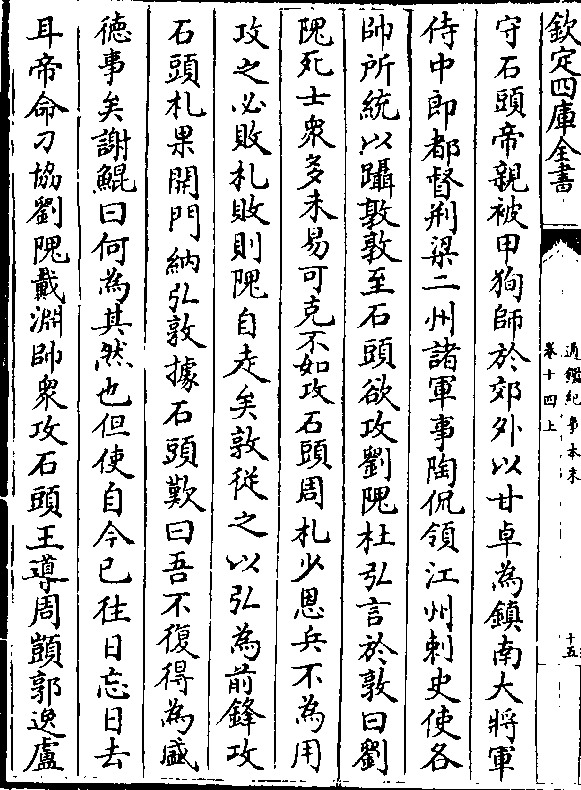 欽定四庫全書
通鑑紀事本末
卷十四上
十五
守石頭帝親被甲狥師於郊外以甘卓為鎮南大將軍
侍中郎都督荆梁二州諸軍事陶侃領江州刺史使各
帥所統以躡敦敦至石頭欲攻劉隗杜弘言於敦曰劉
隗死士衆多未易可克不如攻石頭周札少恩兵不為用
攻之必敗札敗則隗自走矣敦從之以弘為前鋒攻
石頭札果開門納弘敦據石頭歎曰吾不復得為盛
徳事矣謝鯤曰何為其然也但使自今已往日忘日去
耳帝命刁協劉隗戴淵帥衆攻石頭王導周顗郭逸盧